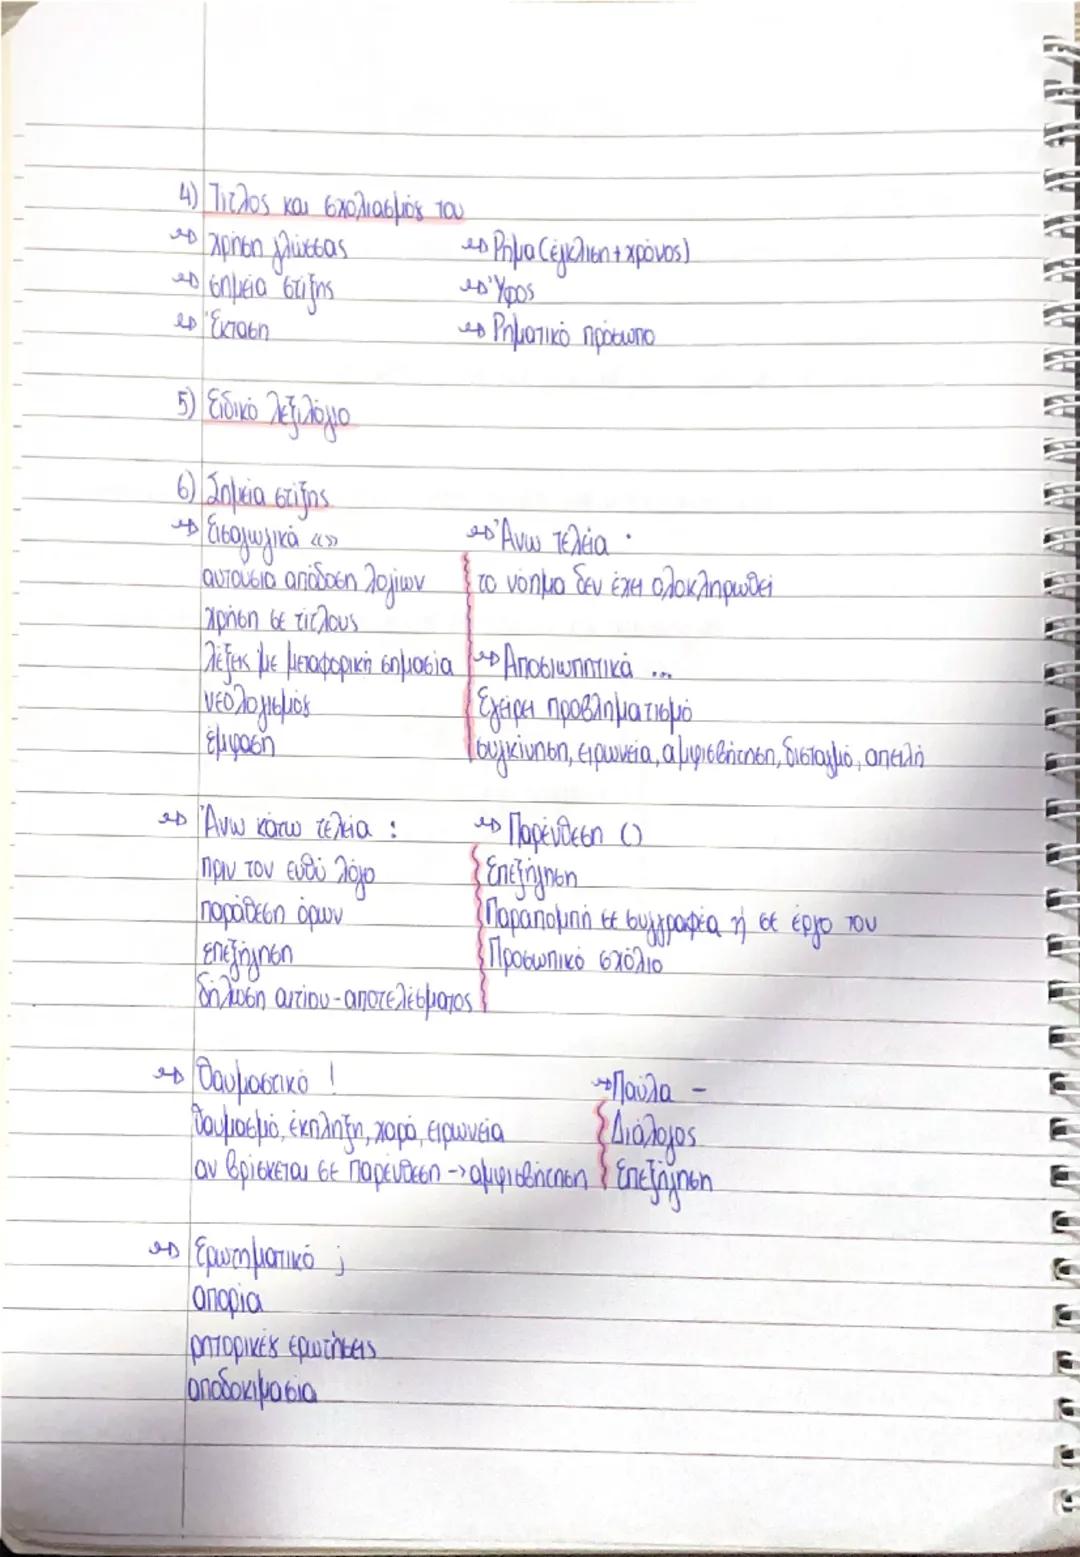 4) Τίτλος και σχολιασμός του
→ χρήση γλώσσας → Ρήμα (έγκλιση + χρόνος)
→ σημεία στίξης → Ύφος
→ Έκταση → Ρηματικό πρόσωπο
5) Ειδικό λεξιλόγιο
6) Σημεία στίξης
→ Εισαγωγικά «» → Άνω τελεία ·
αυτούσια απόδοση λογίων το νόημα δεν έχει ολοκληρωθεί
χρήση σε τίτλους
λέξεις με μεταφορική σημασία → Αποσιωπητικά ...
νεολογισμός Εγείρει προβληματισμό
έμφαση συγκίνηση, ειρωνεία, αμφισβήτηση, δισταγμό, απειλή
→ Άνω κάτω τελεία : → Παρένθεση ()
πριν τον ευθύ λόγο Επεξήγηση
παράθεση όρων Παραπομπή σε συγγραφέα ή σε έργο του
επεξήγηση Προσωπικό σχόλιο
δήλωση αιτίου - αποτελέσματος
→ Θαυμαστικό ! → Παύλα -
θαυμασμό, έκπληξη, χαρά, ειρωνεία Διάλογος
αν βρίσκεται σε παρένθεση -> αμφισβήτηση Επεξήγηση
→ Ερωτηματικό ;
απορία
ρητορικές ερωτήσεις
αποδοκιμασία